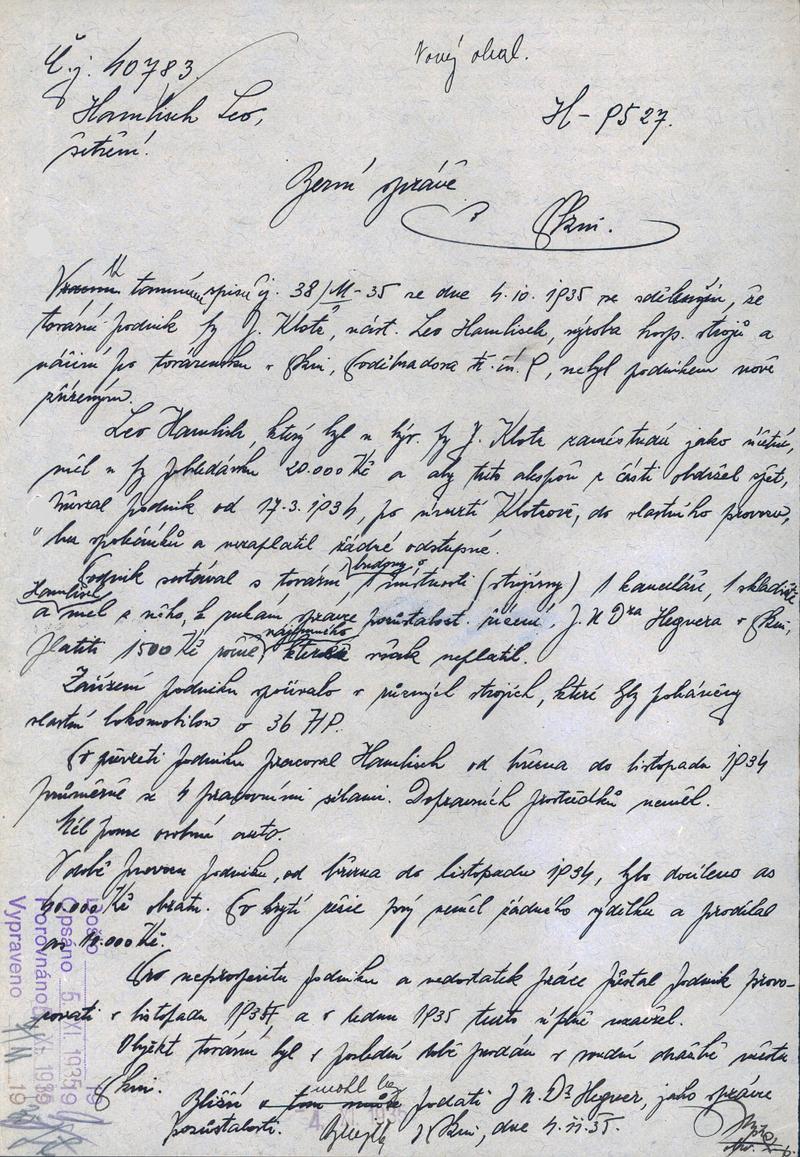 Č.j. 40783.
Nový obal.
Hamlisch Leo,
H - 9527.
šetření.
Berní správě
v
K tamnímu spisu čj. 38/M-35 ze dne 4.10. 1935 se sděluje, že
tovární podnik fy J. Klotz, nást. Leo Hamlisch, výroba hosp. strojů a
nářadí po továrensku v, Poděbradova tř. čís. 9, nebyl podnikem nově
zřízeným.
Leo Hamlisch, který byl u býv. fy J. Klotz zaměstnán jako účetní,
měl u fy pohledávku 20.000 Kč a aby tuto alespoň z části obdržel zpět,
převzal podnik od 17.3. 1934, po úmrtí Klotzově, do vlastního provozu,
a nezaplatil žádné odstupné.
Podnik sestával z tovární budovy o 1 místnosti (strojírny) 1 kanceláře, 1 skladiště
Hamlisch
a měl z něho, k rukám správce pozůstalost. řízení, J.U.Dra Hegnera v,
platiti 1500 Kč ročně nájemného však neplatil.
Zařízení podniku spočívalo v různých strojích, které byly poháněny
vlastní lokomobilou o 36 HP.
Po převzetí podniku pracoval Hamlisch od března do listopadu 1934
průměrně se 4 pracovními silami. Dopravních prostředků neměl.
Měl pouze osobní auto.
V době provozu podniku, od března do listopadu 1934, bylo docíleno as
40.000 Kč obratu. Po krytí režie prý neměl žádného výdělku a prodělal
as 10.000 Kč.
Pro neprosperitu podniku a nedostatek práce přestal podnik provo-
zovati v listopadu 1934, a v lednu 1935 tento úplně uzavřel.
Objekt tovární byl v poslední době prodán v soudní dražbě městu
Bližší mohl by podati J.U.Dr Hegner, jako správce
pozůstalosti. dne 4.11.35.
Došlo 19
Opsáno 6. XI. 1935
Porovnáno XI. 193
Vypraveno 19